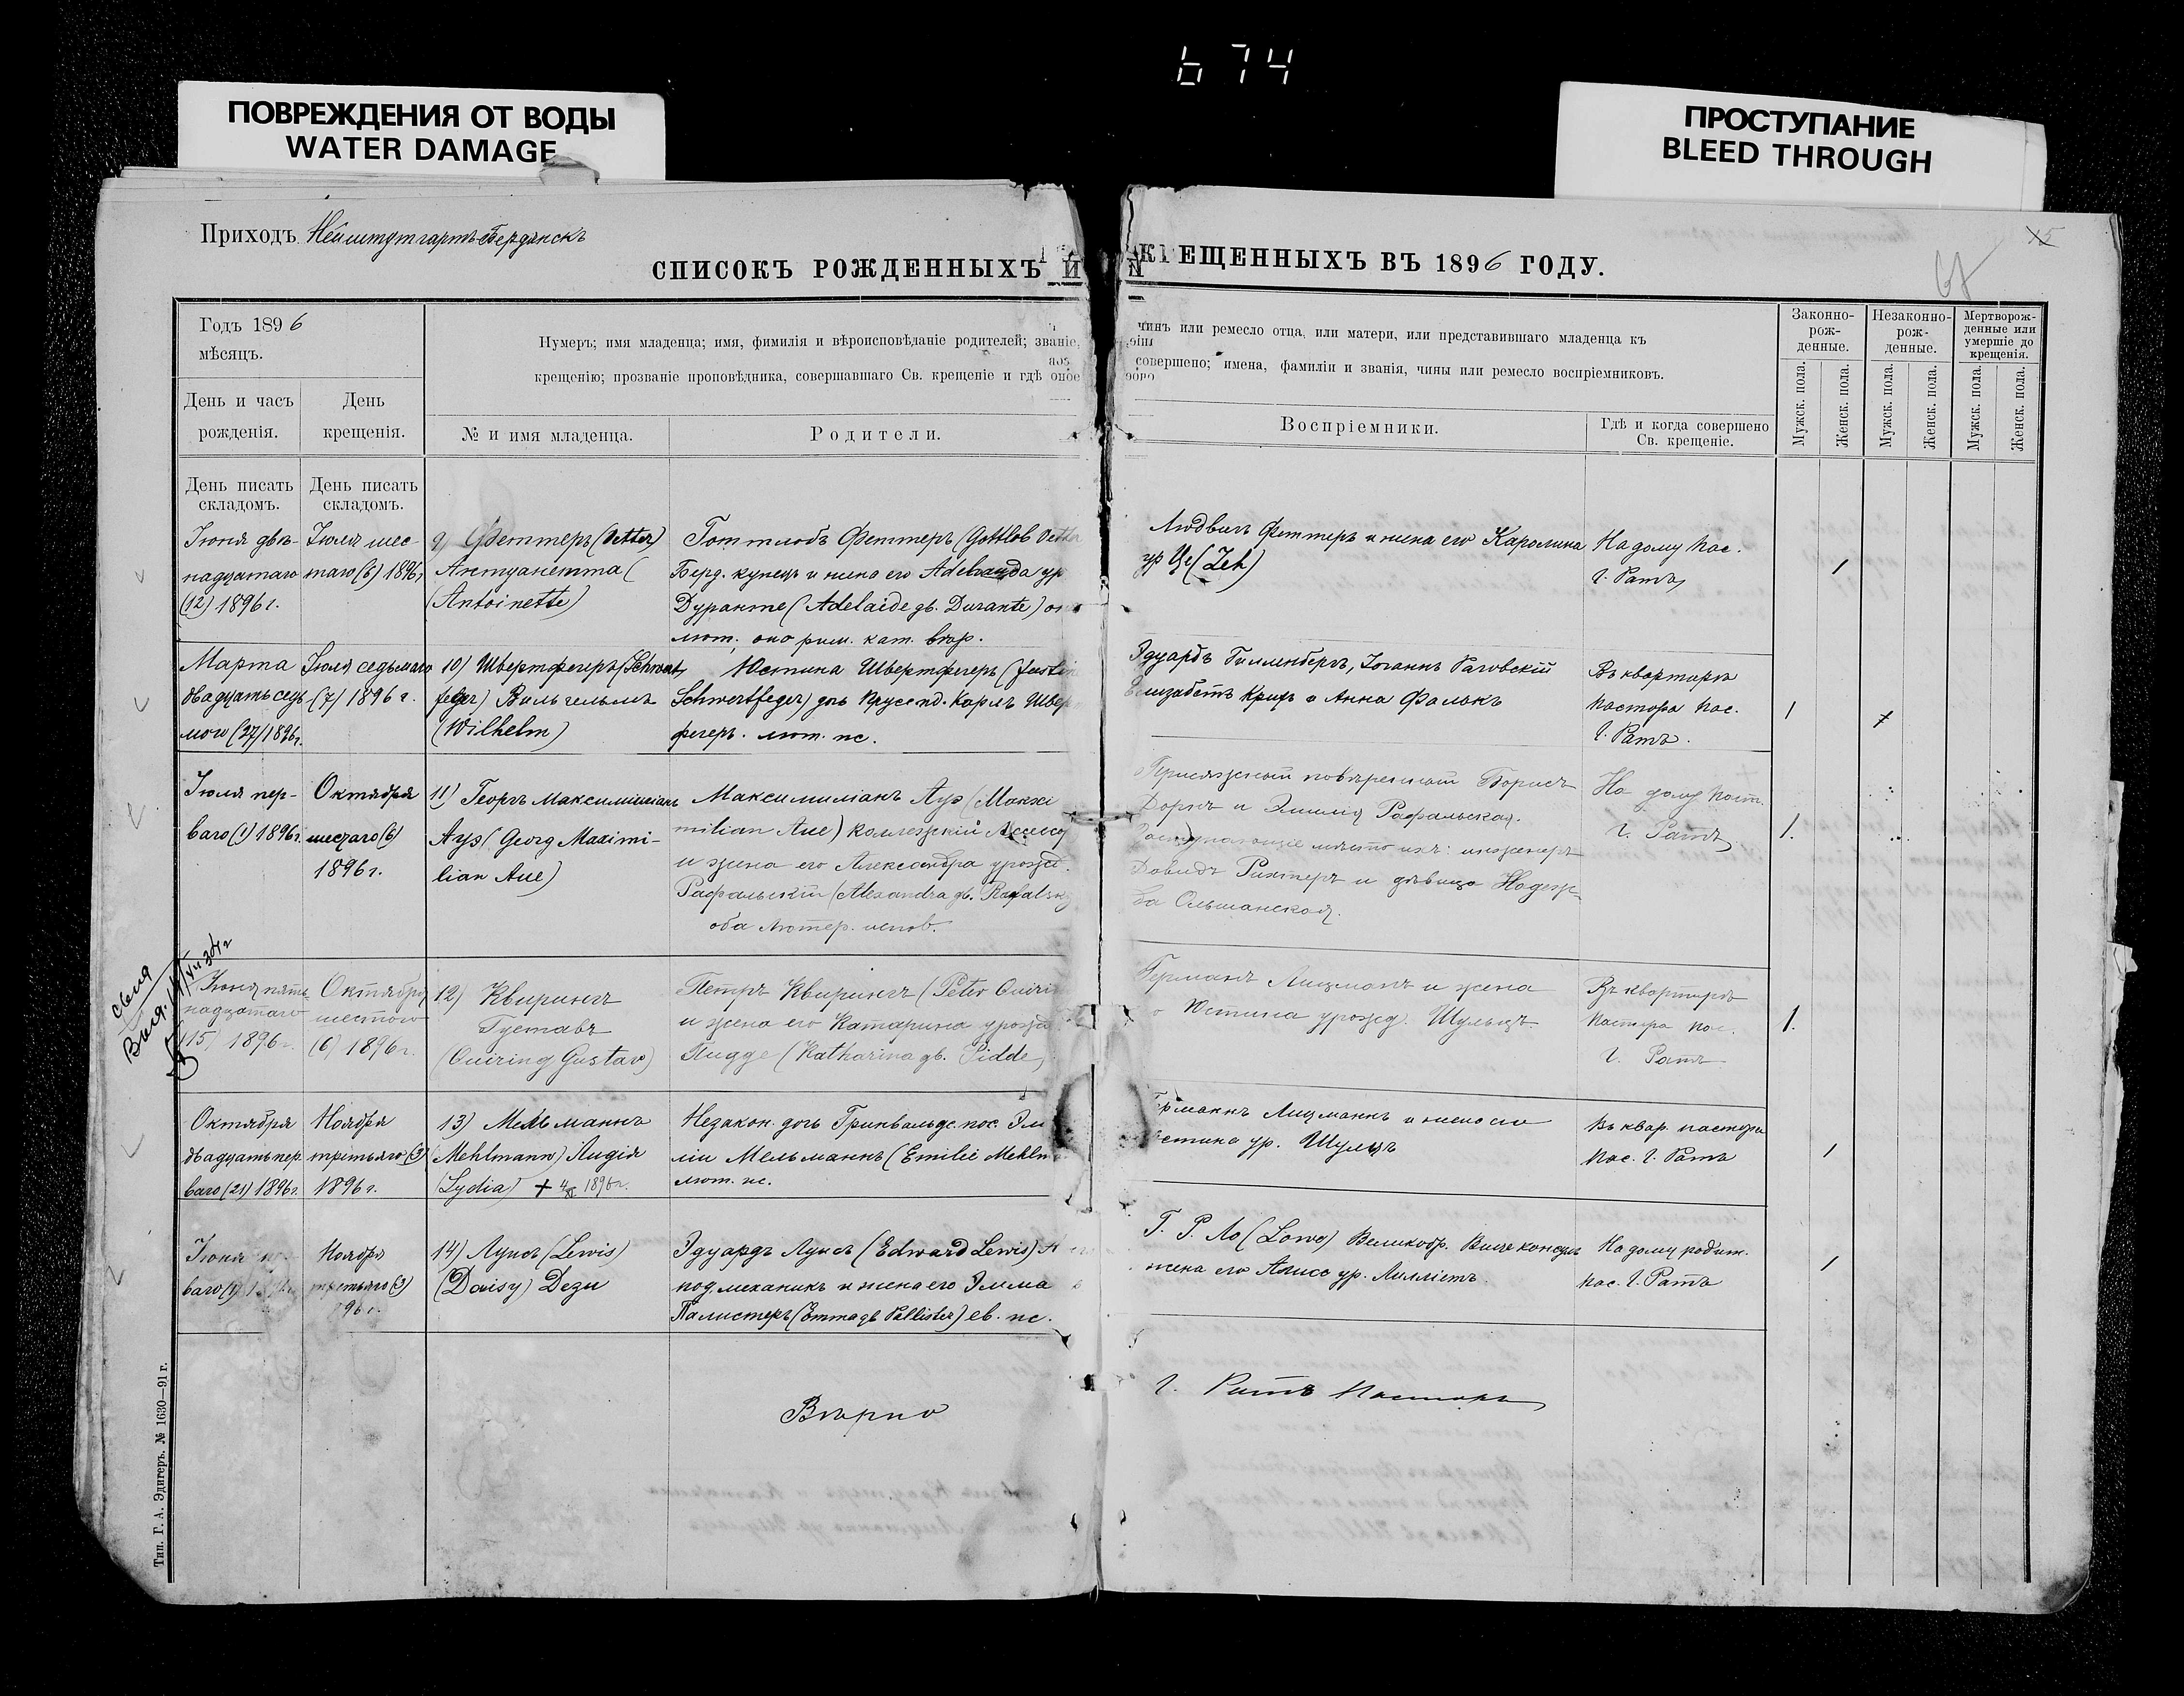 6 74
ПОВРЕЖДЕНИЯ ОТ ВОДЫ
WATER DAMAGE
ПРОСТУПАНИЕ
BLEED THROUGH
Приходъ Нейштутгартъ-Бердянскъ
СПИСОКЪ РОЖДЕННЫХЪ И КРЕЩЕННЫХЪ ВЪ 1896 ГОДУ.
Годъ 1896
мѣсяцъ.
Нумеръ; имя младенца; имя, фимилія и вѣроисповѣданіе родителей; званіе, чинъ или ремесло отца, или матери, или представившаго младенца къ
крещенію; прозваніе проповѣдника, совершавшаго Св. крещеніе и гдѣ оное совершено; имена, фамиліи и званія, чины или ремесло воспріемниковъ.
Законно-
рож-
денные.
Незаконно-
рож-
денные.
Мертворож-
денные или
умершіе до
крещенія.
День и часъ
рожденія.
День
крещенія.
№ и имя младенца.
Родители.
Воспріемники.
Гдѣ и когда совершено
Св. крещеніе.
Мужск. пола.
Женск. пола.
Мужск. пола.
Женск. пола.
Мужск. пола.
Женск. пола.
День писать
складомъ.
День писать
складомъ.
Іюня двѣ-
надцатаго
(12) 1896 г.
Іюля шес-
таго (6) 1896 г.
9) Феттеръ (Vetter)
Антуанетта (
(Antoinette)
Готтлобъ Феттеръ (Gottlob
Берд. купецъ и жена его ур
Дуранте (Adelaide gb. Durante)
лют., она рим. кат. вѣр.
Людвигъ Феттеръ и жена его Каролина
ур Це (Zeh)
На дому пас.
Г. Ратъ
Марта
двадцать седь
маго (27) 1896 г.
Іюля седьмаго
(7) 1896 г.
10) Швертфегеръ (Schwert
feger) Вильгельмъ
(Wilhelm)
Юстина Швертфегеръ
Schwertfeger) дочь Карлъ
фегеръ. лют. ис.
Эдуардъ Гилленбергъ, Іоганнъ Раговскій
Елизабетъ Крицъ и Анна Фалькъ
Въ квартирѣ
пастора пас.
Г. Ратъ.
Іюля пер-
ваго (1) 1896 г.
Октября
шестаго (6)
1896 г.
11) Георгъ Максимиліанъ
Ауэ (Georg Maximi-
lian Aue)
Максимиліанъ Ауэ (Макси
milian Aue) коллежскій
и жена его Александра урожд.
Рафальскій (Alexandra gb. Rafalsky
оба лютер. испов.
Присяжный повѣренный Борисъ
Дорнъ и Эмилія Рафальская.
мѣсто ихъ: инженеръ
Давидъ Рихтеръ и дѣвица Надеж-
да Ольшанская.
На дому паст.
Г. Ратъ
Іюня пят-
надцатаго
(15) 1896 г.
Октября
шестого
(6) 1896 г.
12) Квирингъ
Густавъ
(Quiring Gustav)
Петръ Квирингъ (Peter
и жена его Катарина урожд.
Пидде (Katharina gb. Pidde)
Германъ Лицманъ и жена
Юстина урожд. Шульцъ
Въ квартирѣ
пастора пас.
Г. Ратъ
Октября
двадцать пер.
ваго (21) 1896 г.
Ноября
третьяго (3)
1896 г.
13) Мельманнъ
Mehlmann) Лидія
(Lydia) + 1896 г.
Незакон. дочь Гринвальдс. пос. Эми
ліи Мельманнъ (Emilie
лют. ис.
Германнъ Лицманнъ и жена его
Юстина ур. Шульцъ
Въ квар. пастора
пас. Г. Ратъ
Іюня
ваго (1)
Ноября
третьяго (3)
96 г.
14) Луисъ (Lewis)
(Daisy) Дези
Эдуардъ Луисъ (Edward Lewis)
под. механикъ и жена его Эмма
Палистеръ (Emma gb Pallister) ев. ис.
Г. Р. Ло (Lowe) Великобр. Вице консулъ
жена его Алиса ур. Лилліетъ.
На дому родит.
пас. Г. Ратъ
Вѣрно
Г. Ратъ Пасторъ
Тип. Г. А. Эдигеръ. № 1630—91 г.